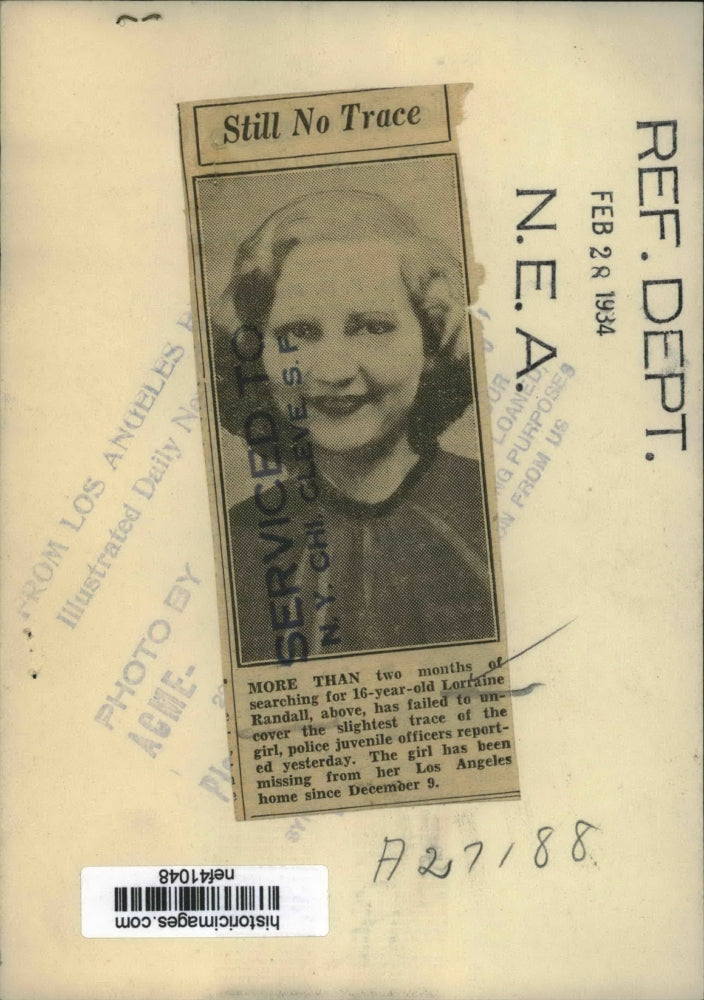 Still No Trace
SERVICED TO
N.Y. CHI. CLEVE. S.F.
MORE THAN two months of
searching for 16-year-old Lorraine
Randall, above, has failed to un-
cover the slightest trace of the
girl, police juvenile officers report-
ed yesterday. The girl has been
missing from her Los Angeles
home since December 9.
REF. DEPT.
FEB 28 1934
N.E.A.
FROM LOS ANGELES
Illustrated Daily
PHOTO BY
ACME-
LOANED,
PURPOSES
FROM US
A27188
historicimages.com
nef41048